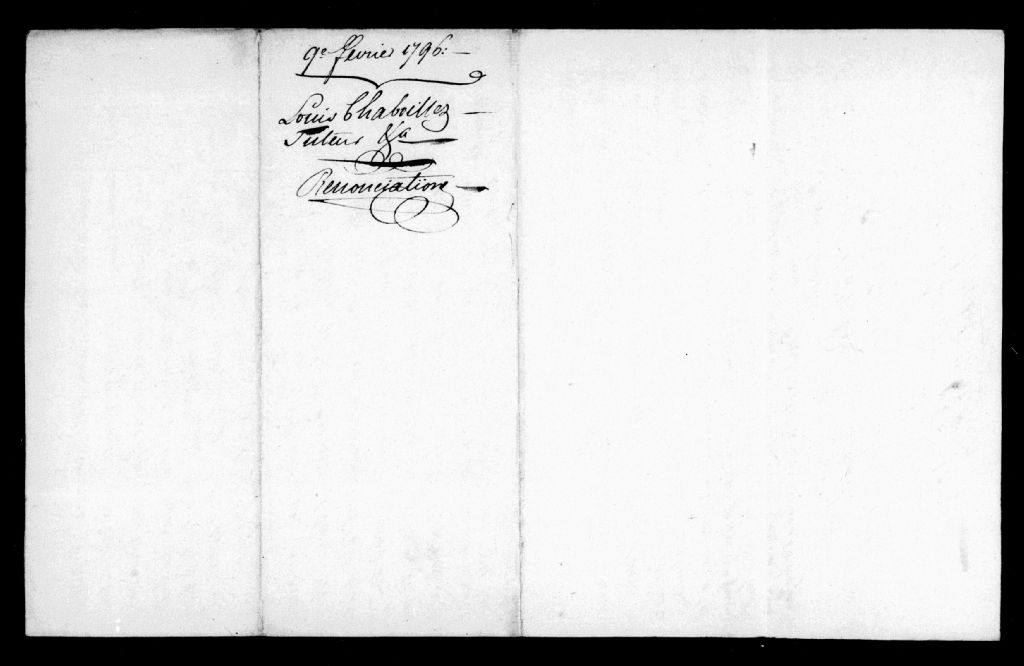 9e. fevrier 1796: —
Louis Chaboillez —
Tuteur &a —
Renonciation —